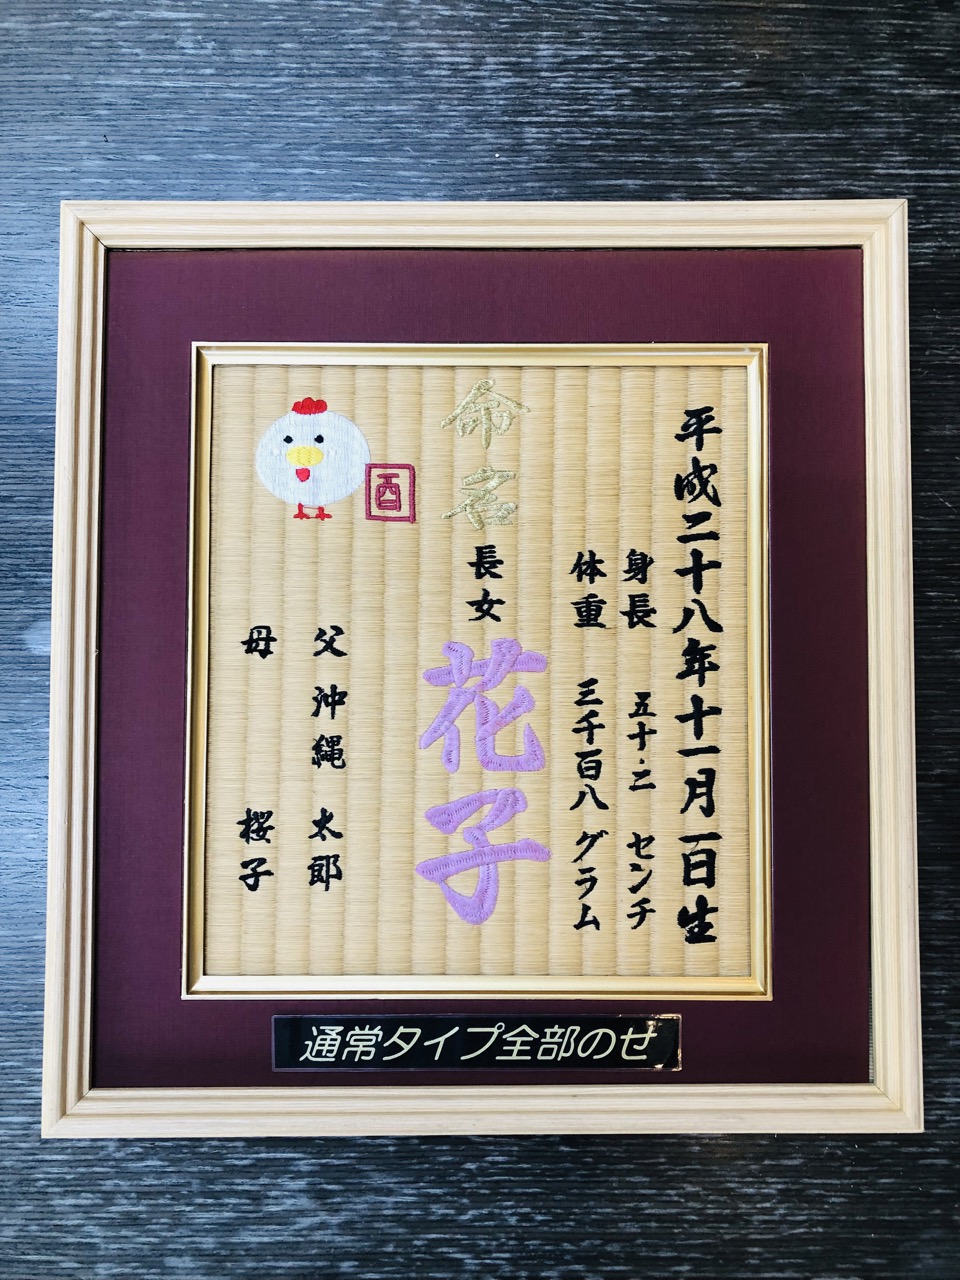 平成二十八年十一月一日生
身長 五十・二 センチ
体重 三千百八 グラム
命名
長女 花子
父 沖縄 太郎
母 桜子
酉
通常タイプ全部のせ